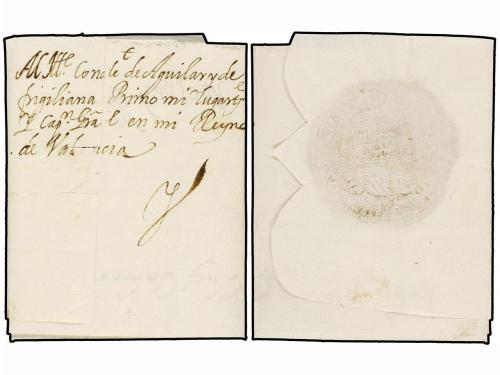 Al Ille. Conde de Aguilar y de
frigiliana Primo mi Lugarte
y Capn Gral en mi Reyno
de Valencia